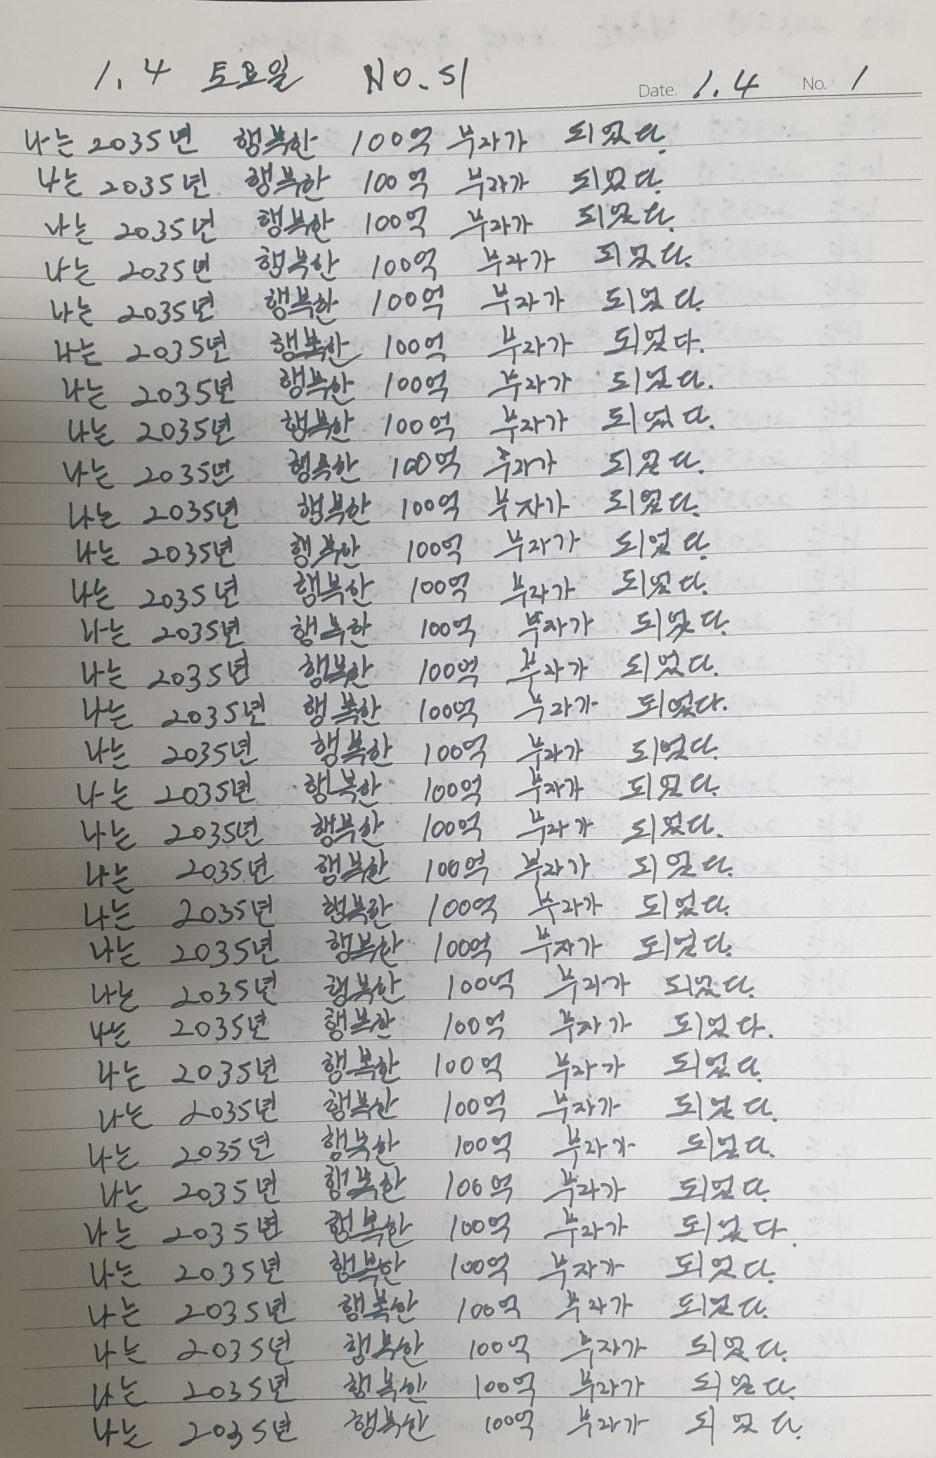 1.4 토요일 NO.51 Date. 1.4 No. 1
나는 2035년 행복한 100억 부자가 되었다.
나는 2035년 행복한 100억 부자가 되었다.
나는 2035년 행복한 100억 부자가 되었다.
나는 2035년 행복한 100억 부자가 되었다.
나는 2035년 행복한 100억 부자가 되었다.
나는 2035년 행복한 100억 부자가 되었다.
나는 2035년 행복한 100억 부자가 되었다.
나는 2035년 행복한 100억 부자가 되었다.
나는 2035년 행복한 100억 부자가 되었다.
나는 2035년 행복한 100억 부자가 되었다.
나는 2035년 행복한 100억 부자가 되었다.
나는 2035년 행복한 100억 부자가 되었다.
나는 2035년 행복한 100억 부자가 되었다.
나는 2035년 행복한 100억 부자가 되었다.
나는 2035년 행복한 100억 부자가 되었다.
나는 2035년 행복한 100억 부자가 되었다.
나는 2035년 행복한 100억 부자가 되었다.
나는 2035년 행복한 100억 부자가 되었다.
나는 2035년 행복한 100억 부자가 되었다.
나는 2035년 행복한 100억 부자가 되었다.
나는 2035년 행복한 100억 부자가 되었다.
나는 2035년 행복한 100억 부자가 되었다.
나는 2035년 행복한 100억 부자가 되었다.
나는 2035년 행복한 100억 부자가 되었다.
나는 2035년 행복한 100억 부자가 되었다.
나는 2035년 행복한 100억 부자가 되었다.
나는 2035년 행복한 100억 부자가 되었다.
나는 2035년 행복한 100억 부자가 되었다.
나는 2035년 행복한 100억 부자가 되었다.
나는 2035년 행복한 100억 부자가 되었다.
나는 2035년 행복한 100억 부자가 되었다.
나는 2035년 행복한 100억 부자가 되었다.
나는 2035년 행복한 100억 부자가 되었다.